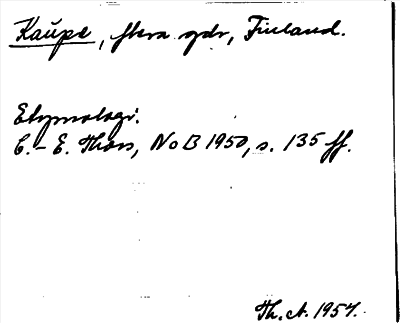 Kaupe, flera gdr, Finland.
Etymologi:
C.-E. Thors, NoB 1950, s. 135 ff.
Th. A. 1957.